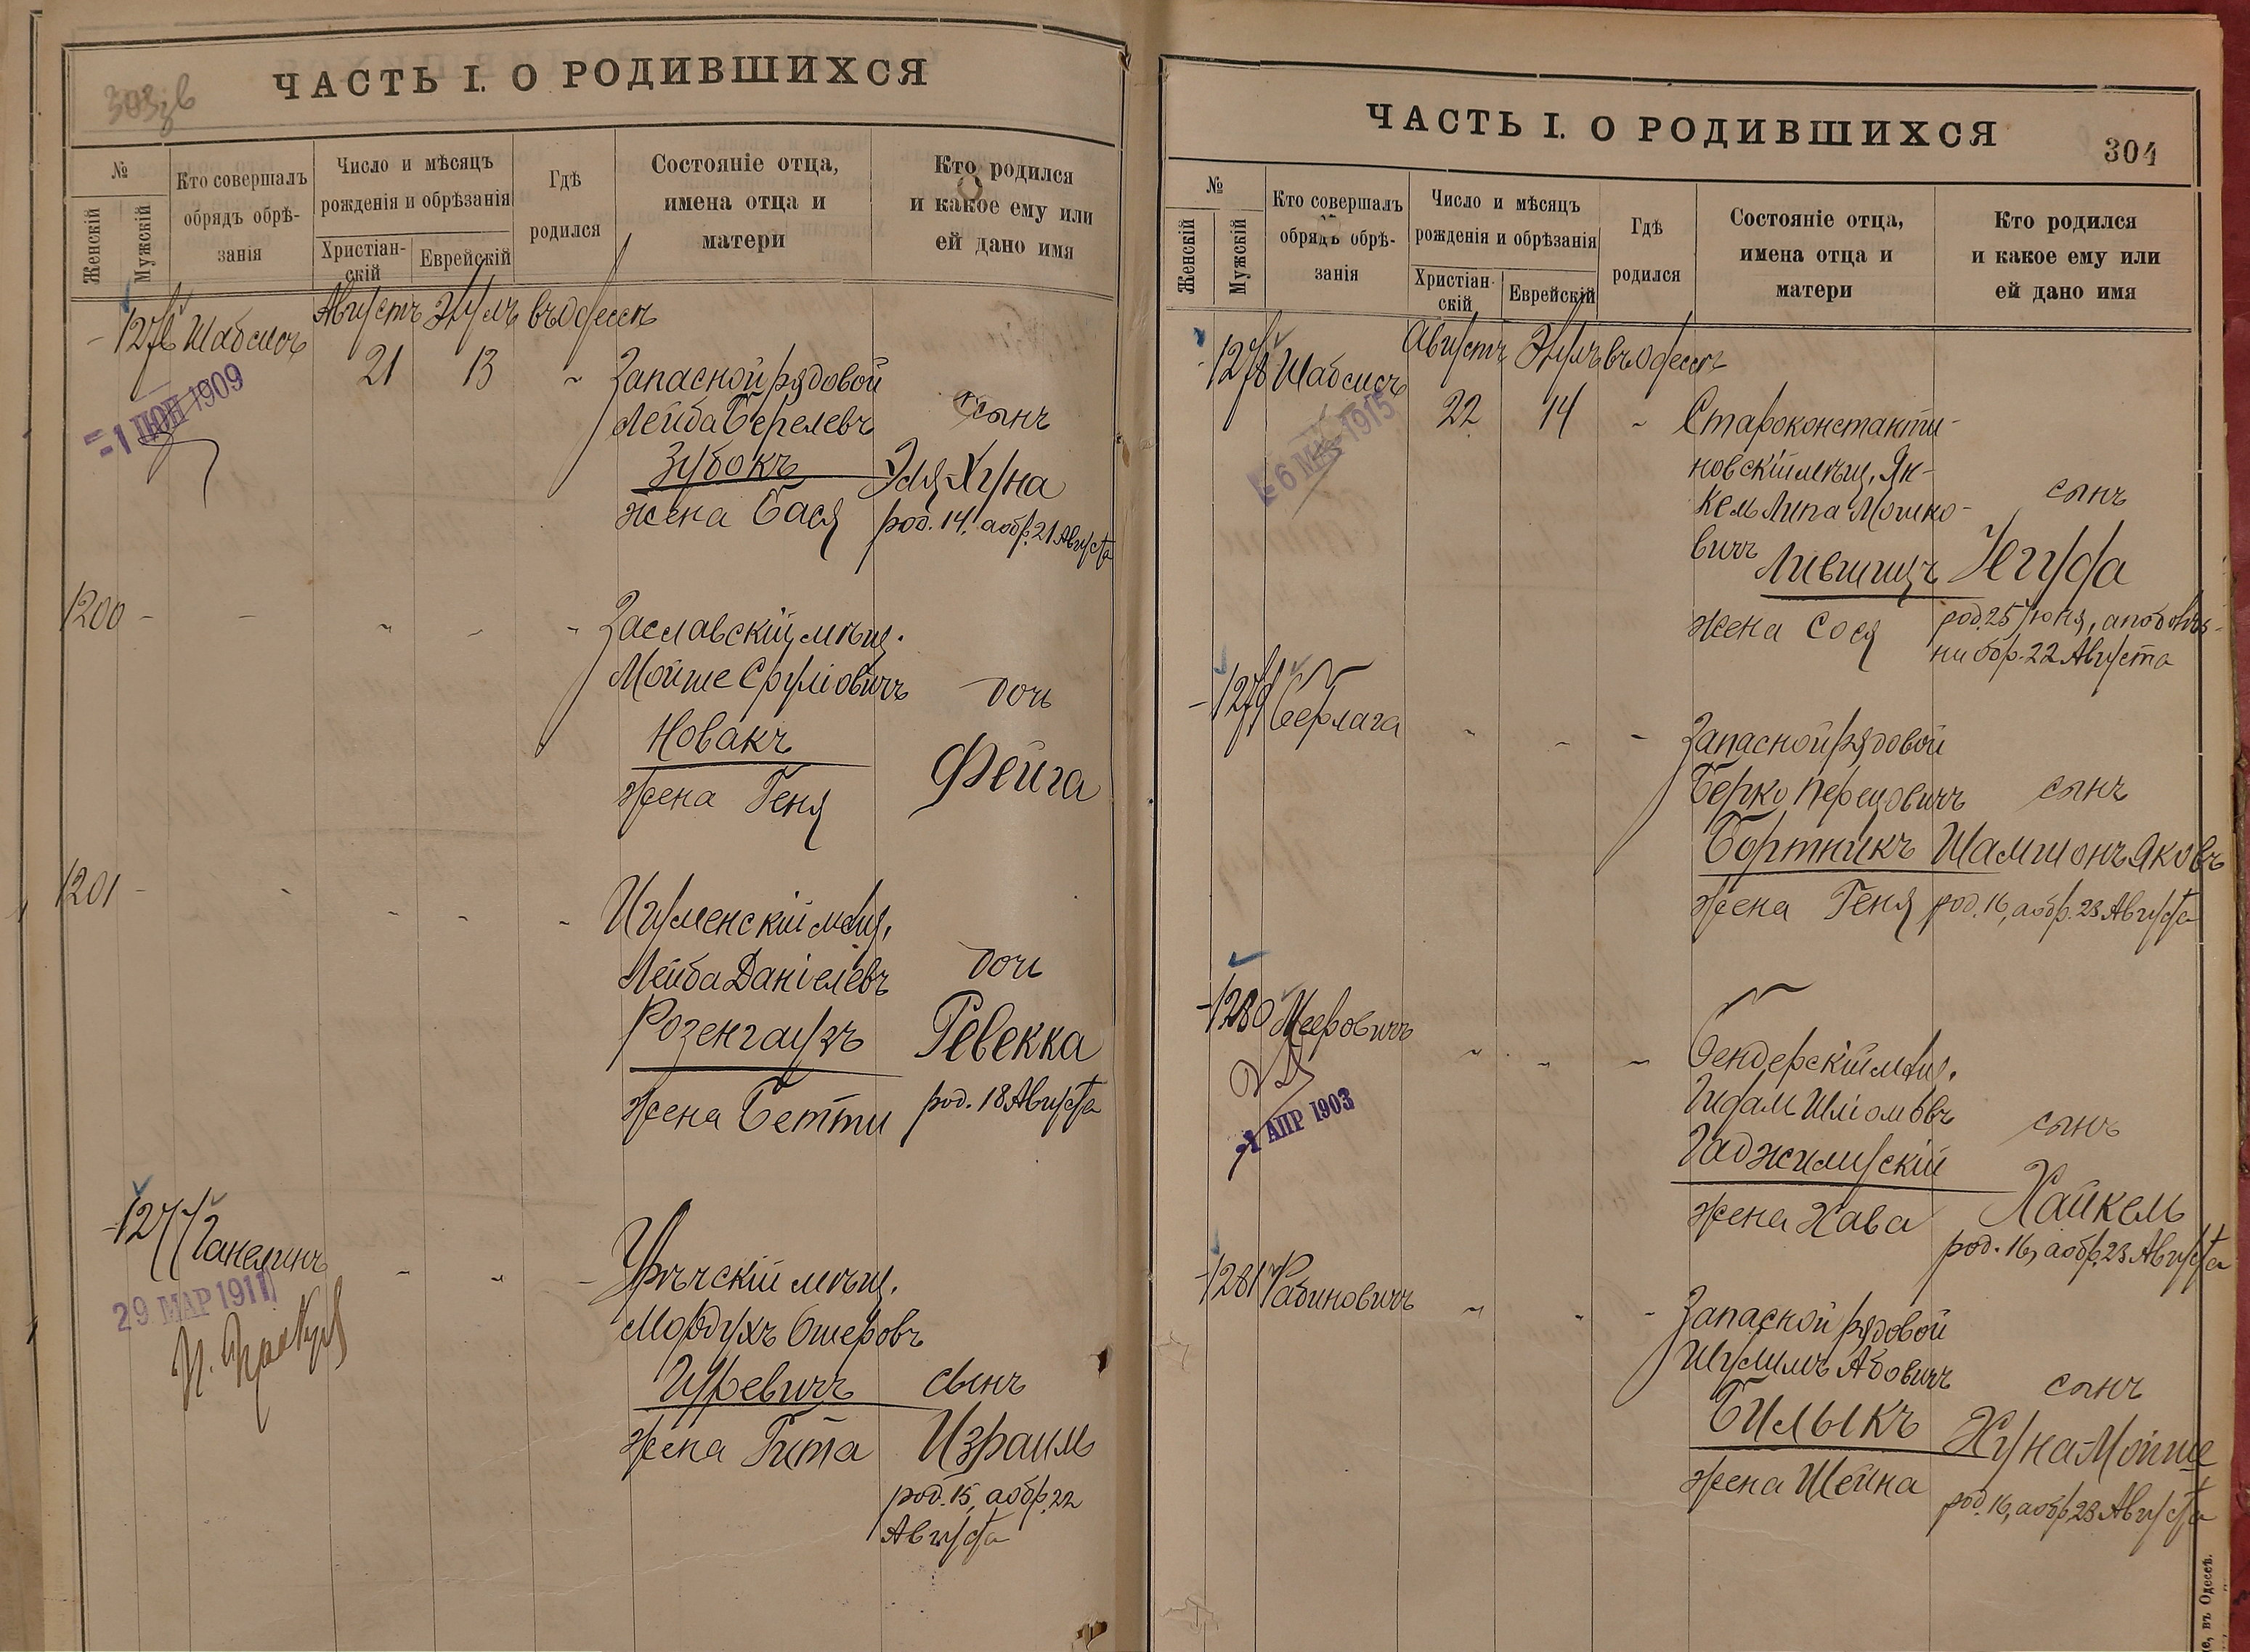 303 зв
ЧАСТЬ I. О РОДИВШИХСЯ
№
Женскій
Мужскій
Кто совершалъ
обрядъ обрѣ-
занія
Число и мѣсяцъ
рожденія и обрѣзанія
Христіан-
скій
Еврейскій
Гдѣ
родился
Состояніе отца,
имена отца и
матери
Кто родился
и какое ему или
ей дано имя
1276 Шабсисъ Августъ Элулъ въ Одессѣ
21 13 Запасной рядовой
Лейба Берелевъ
Зубокъ
жена Бася
сынъ
Эля-Хуна
род. 14, а обр. 21 Августа
1 1909
1200
Заславскій мѣщ.
Мойше Сруліовичъ
Новакъ
жена Геня
дочь
Фейга
1201
Игуменскій мѣщ.
Лейба Даніелевъ
Розенгаузъ
жена Бетти
дочь
Ревекка
род. 18 Августа
1277 Ганелинъ
29 МАР 1911
Мордухъ Ошеровъ
Гуревичъ
жена Гита
сынъ
Израиль
род. 15, а обр. 22
Августа
ЧАСТЬ I. О РОДИВШИХСЯ
304
№
Женскій
Мужскій
Кто совершалъ
обрядъ обрѣ-
занія
Число и мѣсяцъ
рожденія и обрѣзанія
Христіан-
скій
Еврейскій
Гдѣ
родился
Состояніе отца,
имена отца и
матери
Кто родился
и какое ему или
ей дано имя
1278 Шабсисъ Августъ Элулъ въ Одессѣ
22 14 Староконстанти-
новскій мѣщ. Ян-
кель Липа Мошко-
вичъ Лившицъ
жена Сося
сынъ
Іегуда
род. 25 Іюня, а по болѣз-
ни обр. 22 Августа
6 1915
1279 Берлага
Запасной рядовой
Берко Перецовичъ
Бортникъ
жена Геня
сынъ
Шамшонъ Яковъ
род. 16, а обр. 23 Августа
1280 Мееровичъ
АПР 1903
Бендерскій мѣщ.
Гидаль Шліомовъ
Гаджилускій
жена Хава
сынъ
Хайкель
род. 16, а обр. 23 Августа
1281 Рабиновичъ
Запасной рядовой
Шулимъ Абовичъ
Билыкъ
жена Шейна
сынъ
Хуна-Мойше
род. 16, а обр. 23 Августа
въ Одессѣ.